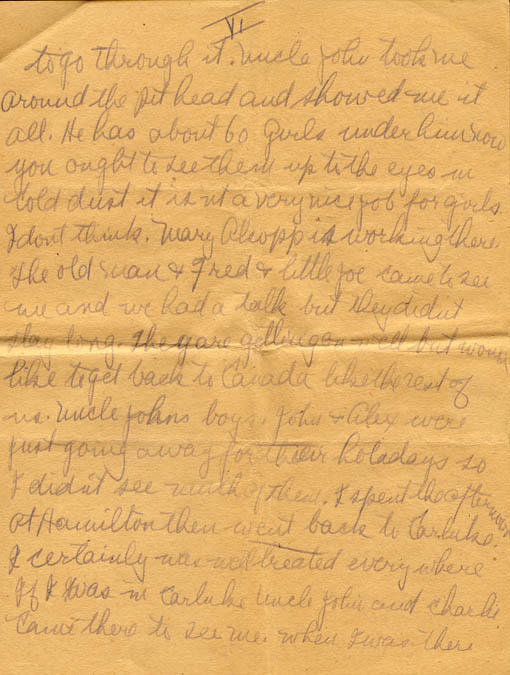 VI
to go through it. Uncle John took me
around the pit head and showed me it
all. He has about 60 girls under him now
you ought to see them up to the eyes in
cold dust it isnt a very nice job for girls
I dont think. Mary Alcopp is working there
the old man & Fred & little Joe came to see
me and we had a talk but they didnt
stay long. They are getting on well but would
like to get back to Canada like the rest of
us. Uncle Johns boys, John & Alex were
just going away for their holadays so
I didnt see much of them. I spent the afternoon
at Hamilton then went back to Carluke.
I certainly was well treated everywhere
If I was in Carluke Uncle John and Charlie
came there to see me. when I was there